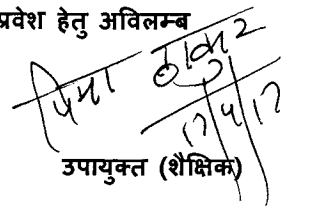 प्रवेश हेतु अविलम्ब
ठाकुर
17/4/17
उपायुक्त (शैक्षिक)